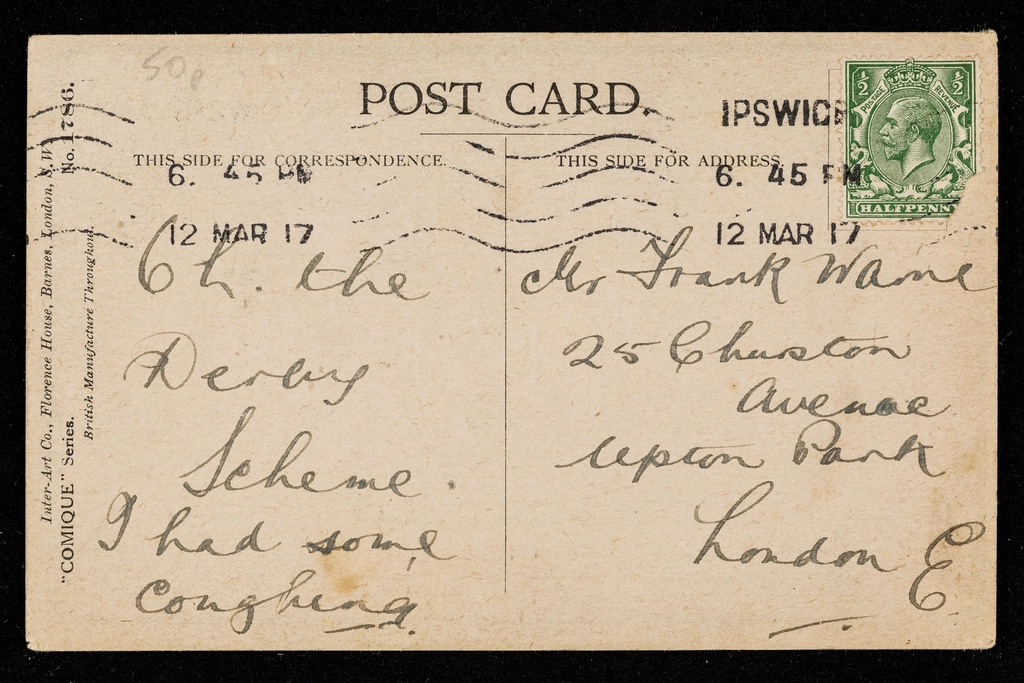 50p
POST CARD.
THIS SIDE FOR CORRESPONDENCE.
THIS SIDE FOR ADDRESS.
IPSWICH
6. 45 PM
12 MAR 17
6. 45 PM
12 MAR 17
½ ½
POSTAGE REVENUE
HALFPENNY
Inter-Art Co., Florence House, Barnes, London, S.W.
"COMIQUE" Series. No. 1786.
British Manufacture Throughout.
Oh. the
Derby
Scheme.
I had some
coughing.
Mr Frank Warne
25 Churston
Avenue
Upton Park
London E